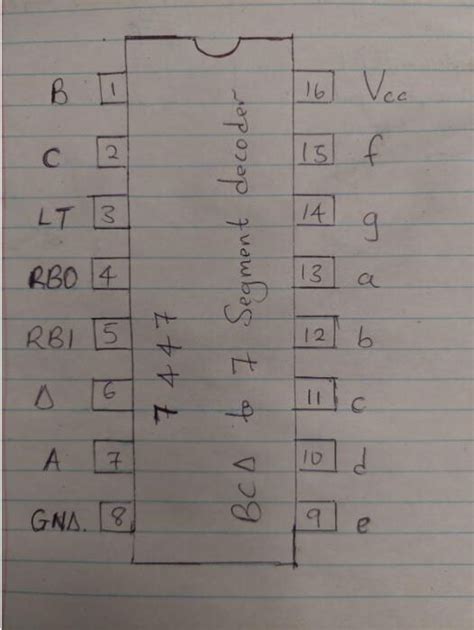 B 1 16 Vcc
C 2 15 f
LT 3 14 g
RBO 4 13 a
RBI 5 12 b
D 6 11 c
A 7 10 d
GND. 8 9 e
7447
BCD to 7 Segment decoder